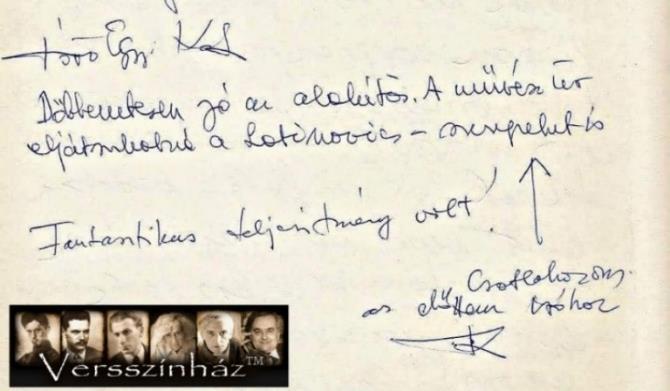 Döbbenetesen jó az alakítás. A művész úr
eljátszhatná a Latinovics - szerepeket is
Fantasztikus teljesítmény volt!
Csatlakozom
az előttem íróhoz
Versszínház™